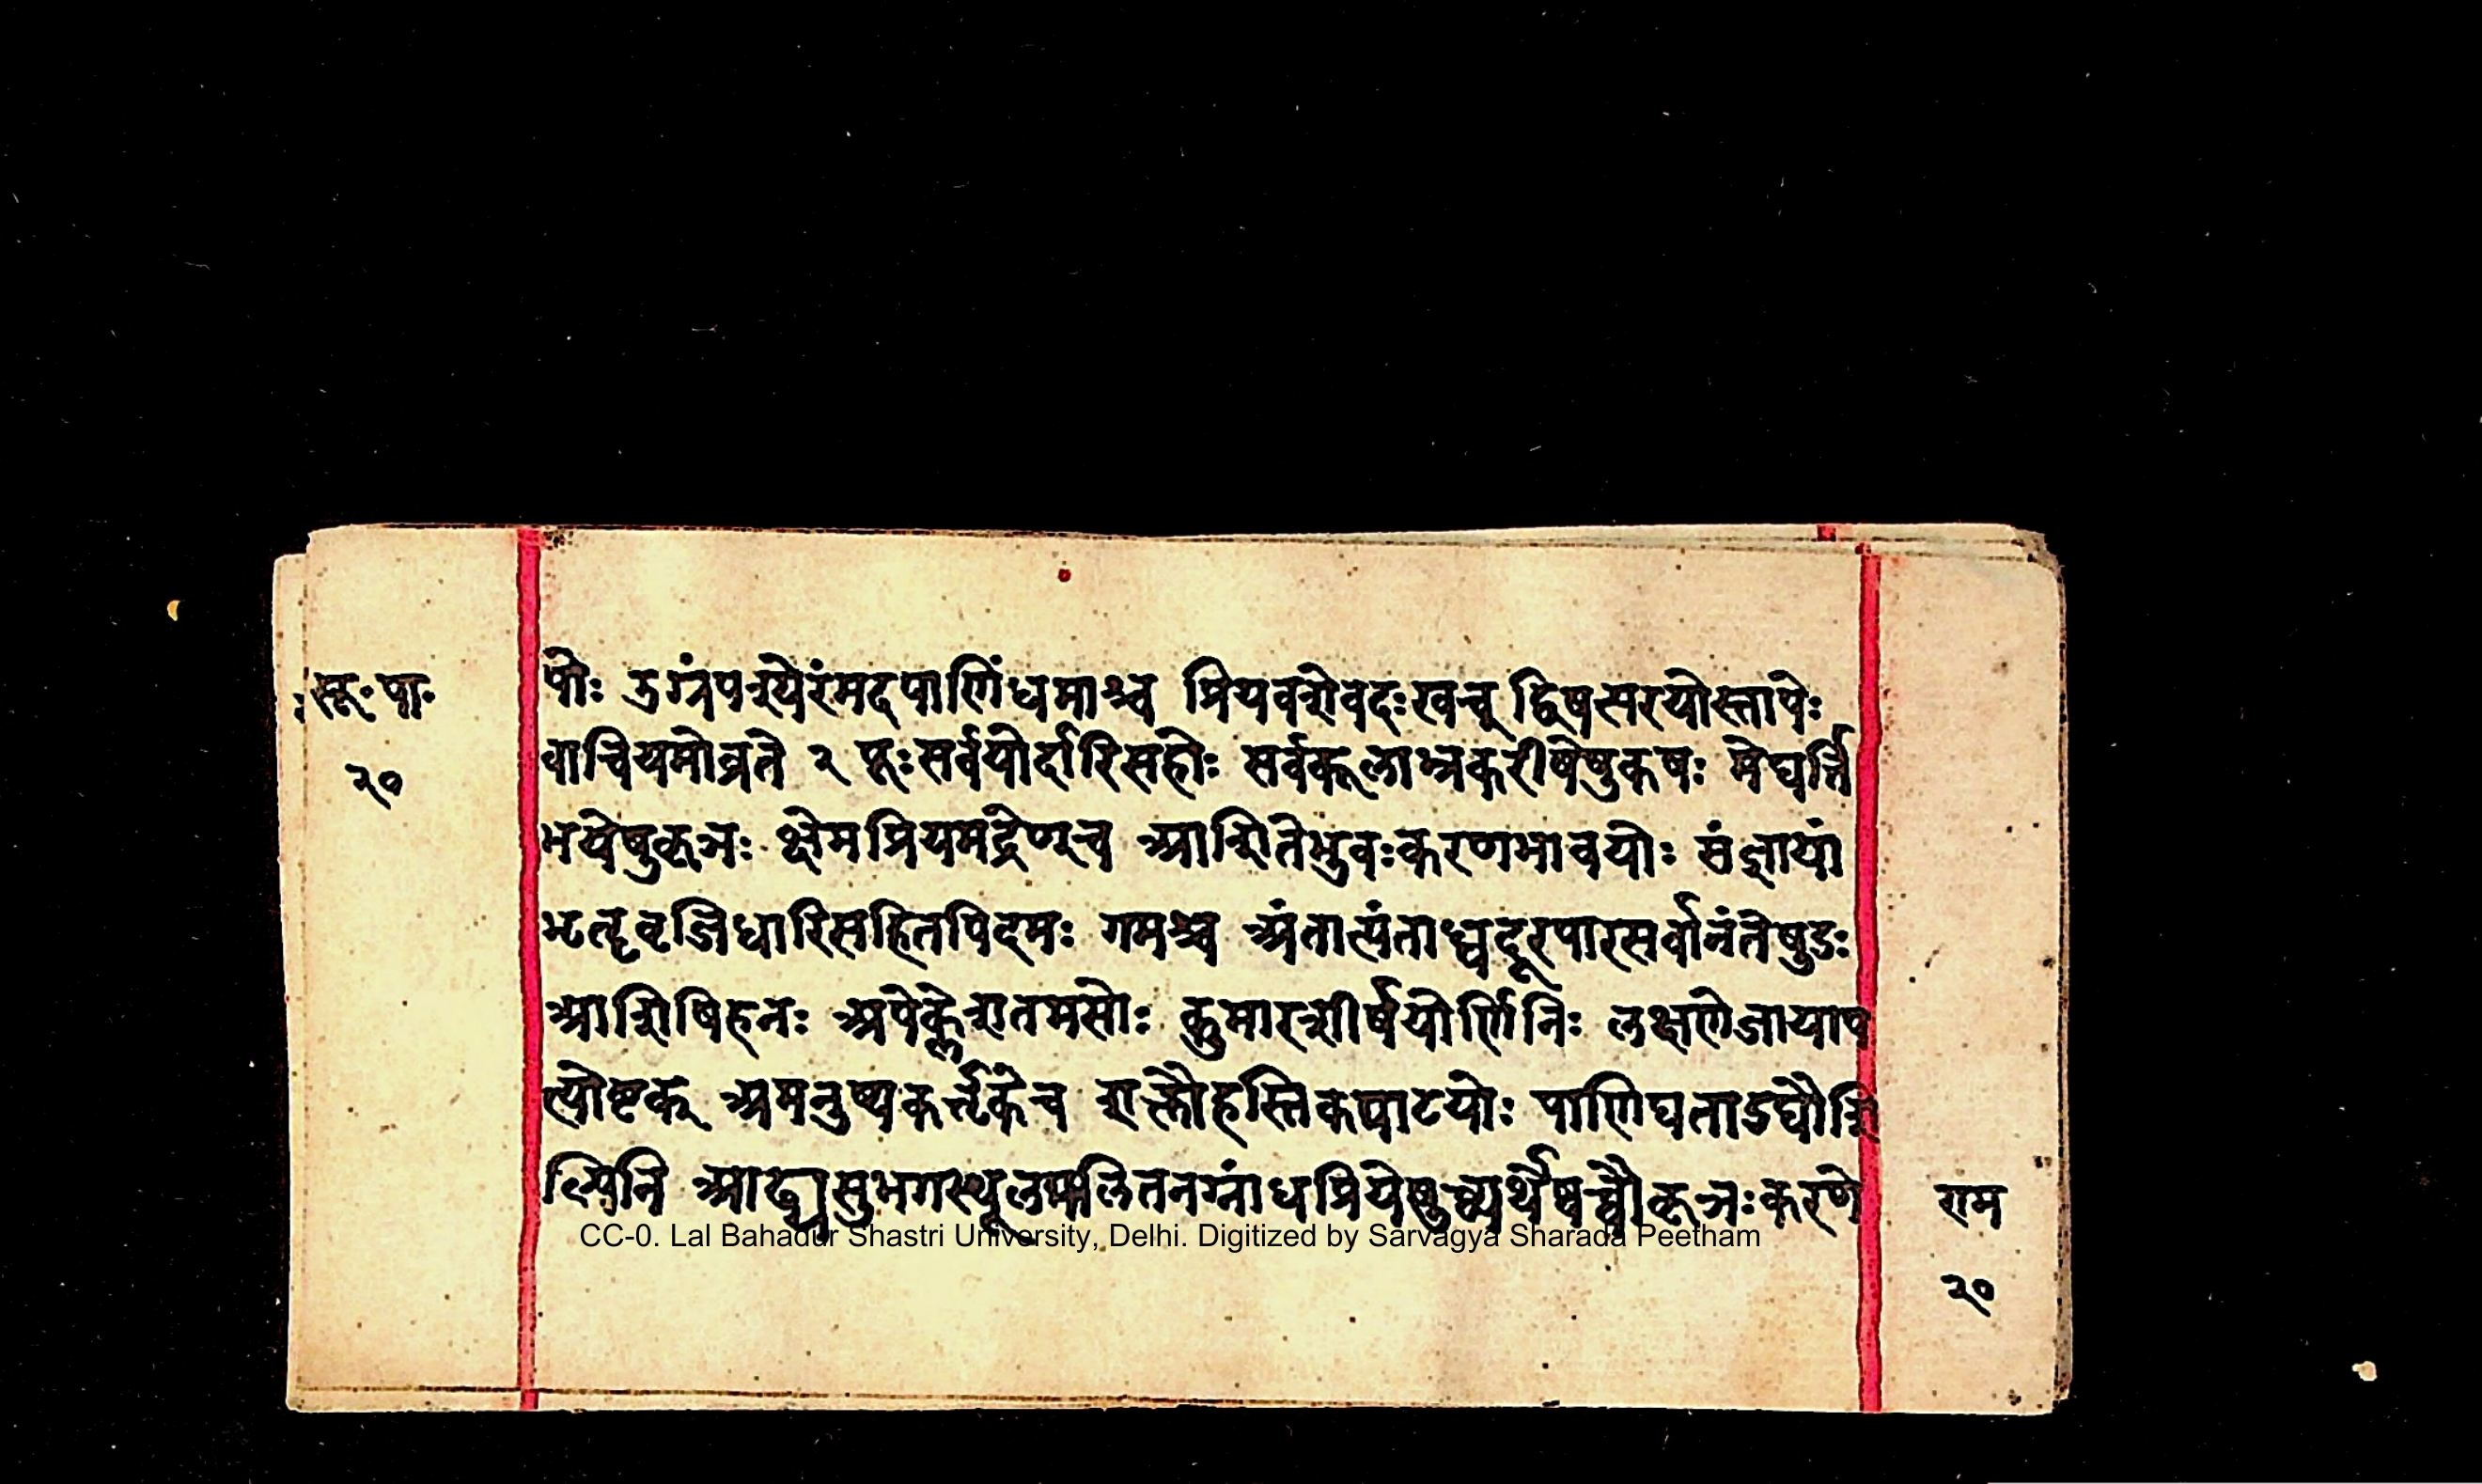 सू॰ पा॰
२०
पोः उग्रंपश्येरंमदपाणिंधमाश्च प्रियवशेवदःखच् द्विषत्परयोस्तापेः
वाचियमोव्रते २ पूःसर्वयोर्दारिसहोः सर्वकूलाभ्रकरीषेषुकषः मेघर्त्ति
भयेषुकृञः क्षेमप्रियमद्रेण्च आशितेभुवःकरणभावयोः संज्ञायां
भृतॄवृजिधारिसहितपिदमः गमश्च अंतात्यंताध्वदूरपारसर्वानंतेषुडः
आशिषिहनः अपेक्लेशतमसोः कुमारशीर्षयोर्णिनिः लक्षणेजायाप
त्योष्टक् अमनुष्यकर्त्तृकेच शक्तौहस्तिकपाटयोः पाणिघताडघौशि
ल्पिनि आढ्यसुभगस्थूलपलितनग्नांधप्रियेषुच्व्यर्थेष्वच्वौकृञःकरणे
राम
२०
CC-0. Lal Bahadur Shastri University, Delhi. Digitized by Sarvagya Sharada Peetham